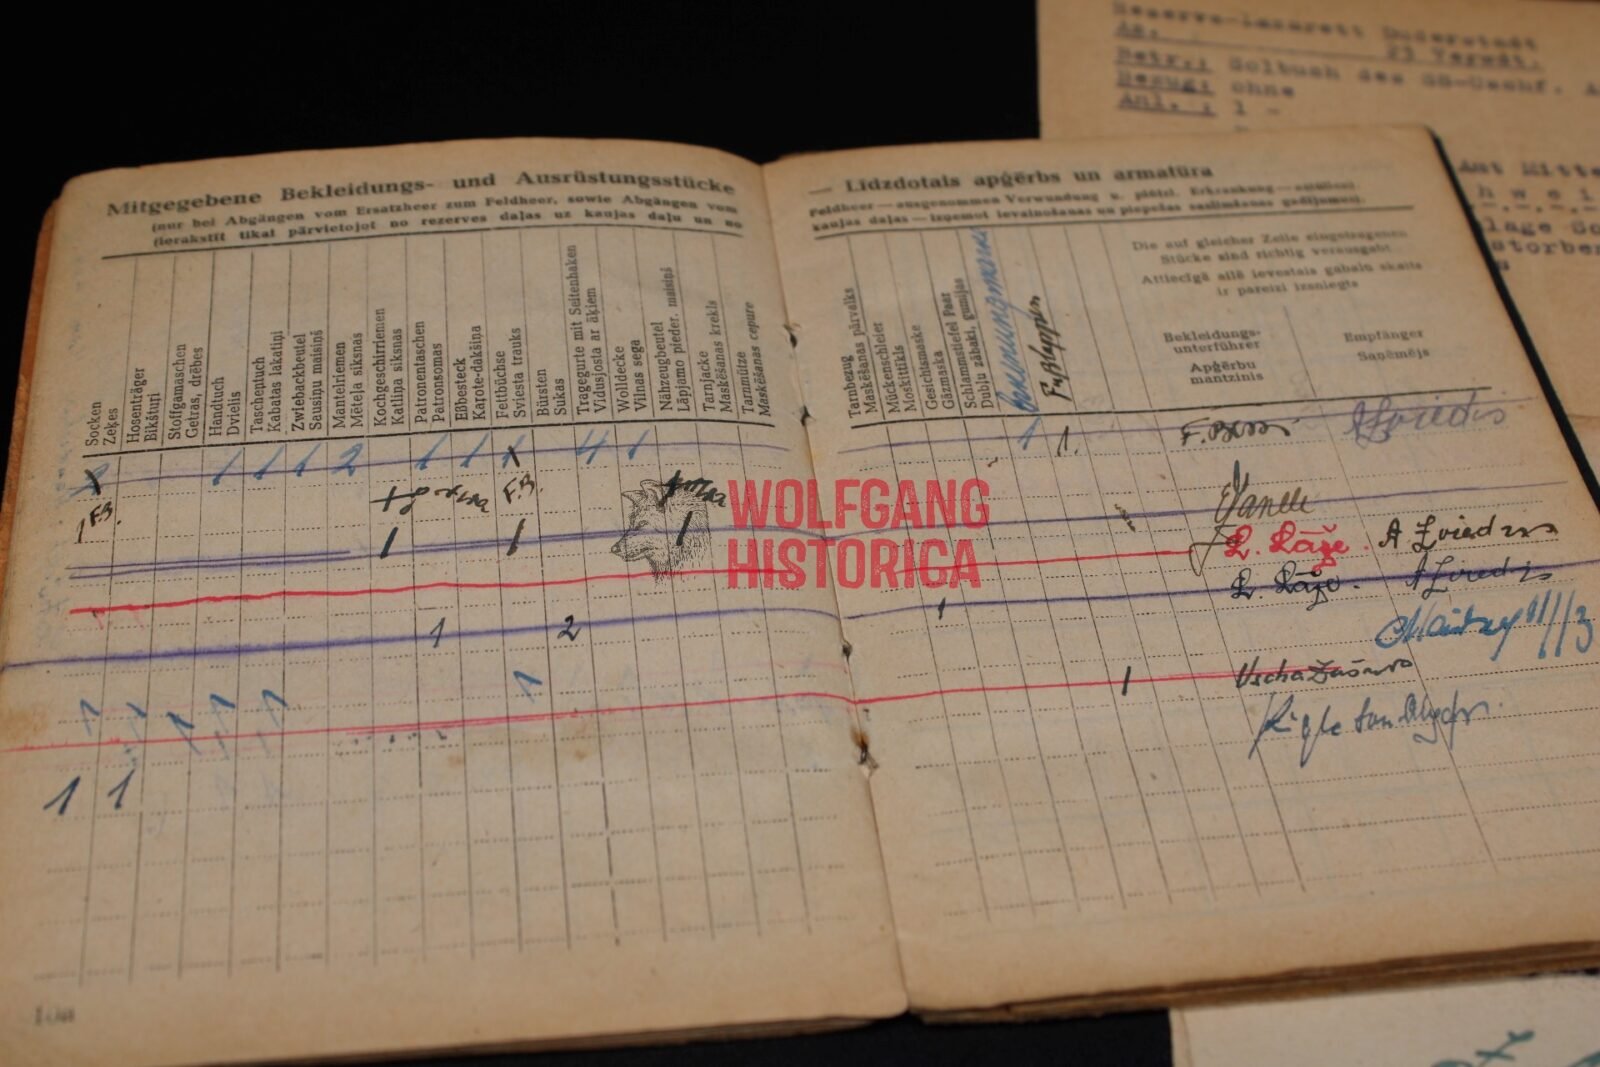 Mitgegebene Bekleidungs- und Ausrüstungsstücke
(nur bei Abgängen vom Ersatzheer zum Feldheer, sowie Abgängen vom
(ierakstīt tikai pārvietojot no rezerves daļas uz kaujas daļu un no
Socken
Zeķes
Hosenträger
Bikšturi
Stoffgamaschen
Getras, drēbes
Handtuch
Dvielis
Taschentuch
Kabatas lakatiņi
Zwiebackbeutel
Sausiņu maisiņš
Mantelriemen
Mēteļa siksnas
Kochgeschirriemen
Katliņa siksnas
Patronentaschen
Patronsomas
Eßbesteck
Karote-dakšiņa
Fettbüchse
Sviesta trauks
Bürsten
Sukas
Tragegurte mit Seitenhaken
Vidusjosta ar āķiem
Wolldecke
Vilnas sega
Nähzeugbeutel
Lāpjamo pieder. maisiņš
Tarnjacke
Maskēšanas krekls
Tarnmütze
Maskēšanas cepure
X 1 1 1 2 1 1 X 4 1
1 F.B. F.B.
1 1 1
1 2
1 1 1 1 1 1
1 1
— Līdzdotais apģērbs un armatūra
Feldheer — ausgenommen Verwundung u. plötzl. Erkrankung — ausfüllen).
kaujas daļas — izņemot ievainošanas un piepešas saslimšanas gadījumus).
Tarnbezug
Maskēšanas pārvalks
Mückenschleier
Moskittīkls
Gesichtsmaske
Gāzmaska
Schlammstiefel Paar
Dubļu zābaki, gumijas
Erkennungsmarke
Fußlappen
Die auf gleicher Zeile eingetragenen
Stücke sind richtig verausgabt.
Attiecīgā ailē ievestais gabalu skaits
ir pareizi izsniegts
Bekleidungs-
unterführer
Apģērbu
mantzinis
Empfänger
Saņēmējs
1 1.
L. Lāže. A Zviedris
L. Lāže. A Zviedris
1
1 Uscha
Reserve-Lazarett Duderstadt
Az. 23 Verwdt.
Betr.: Soldbuch des SS-Uschf. A
Bezug: ohne
Anl. : 1 -
Amt Mitte
h w e i
lage So
storben
s
WOLFGANG
HISTORICA